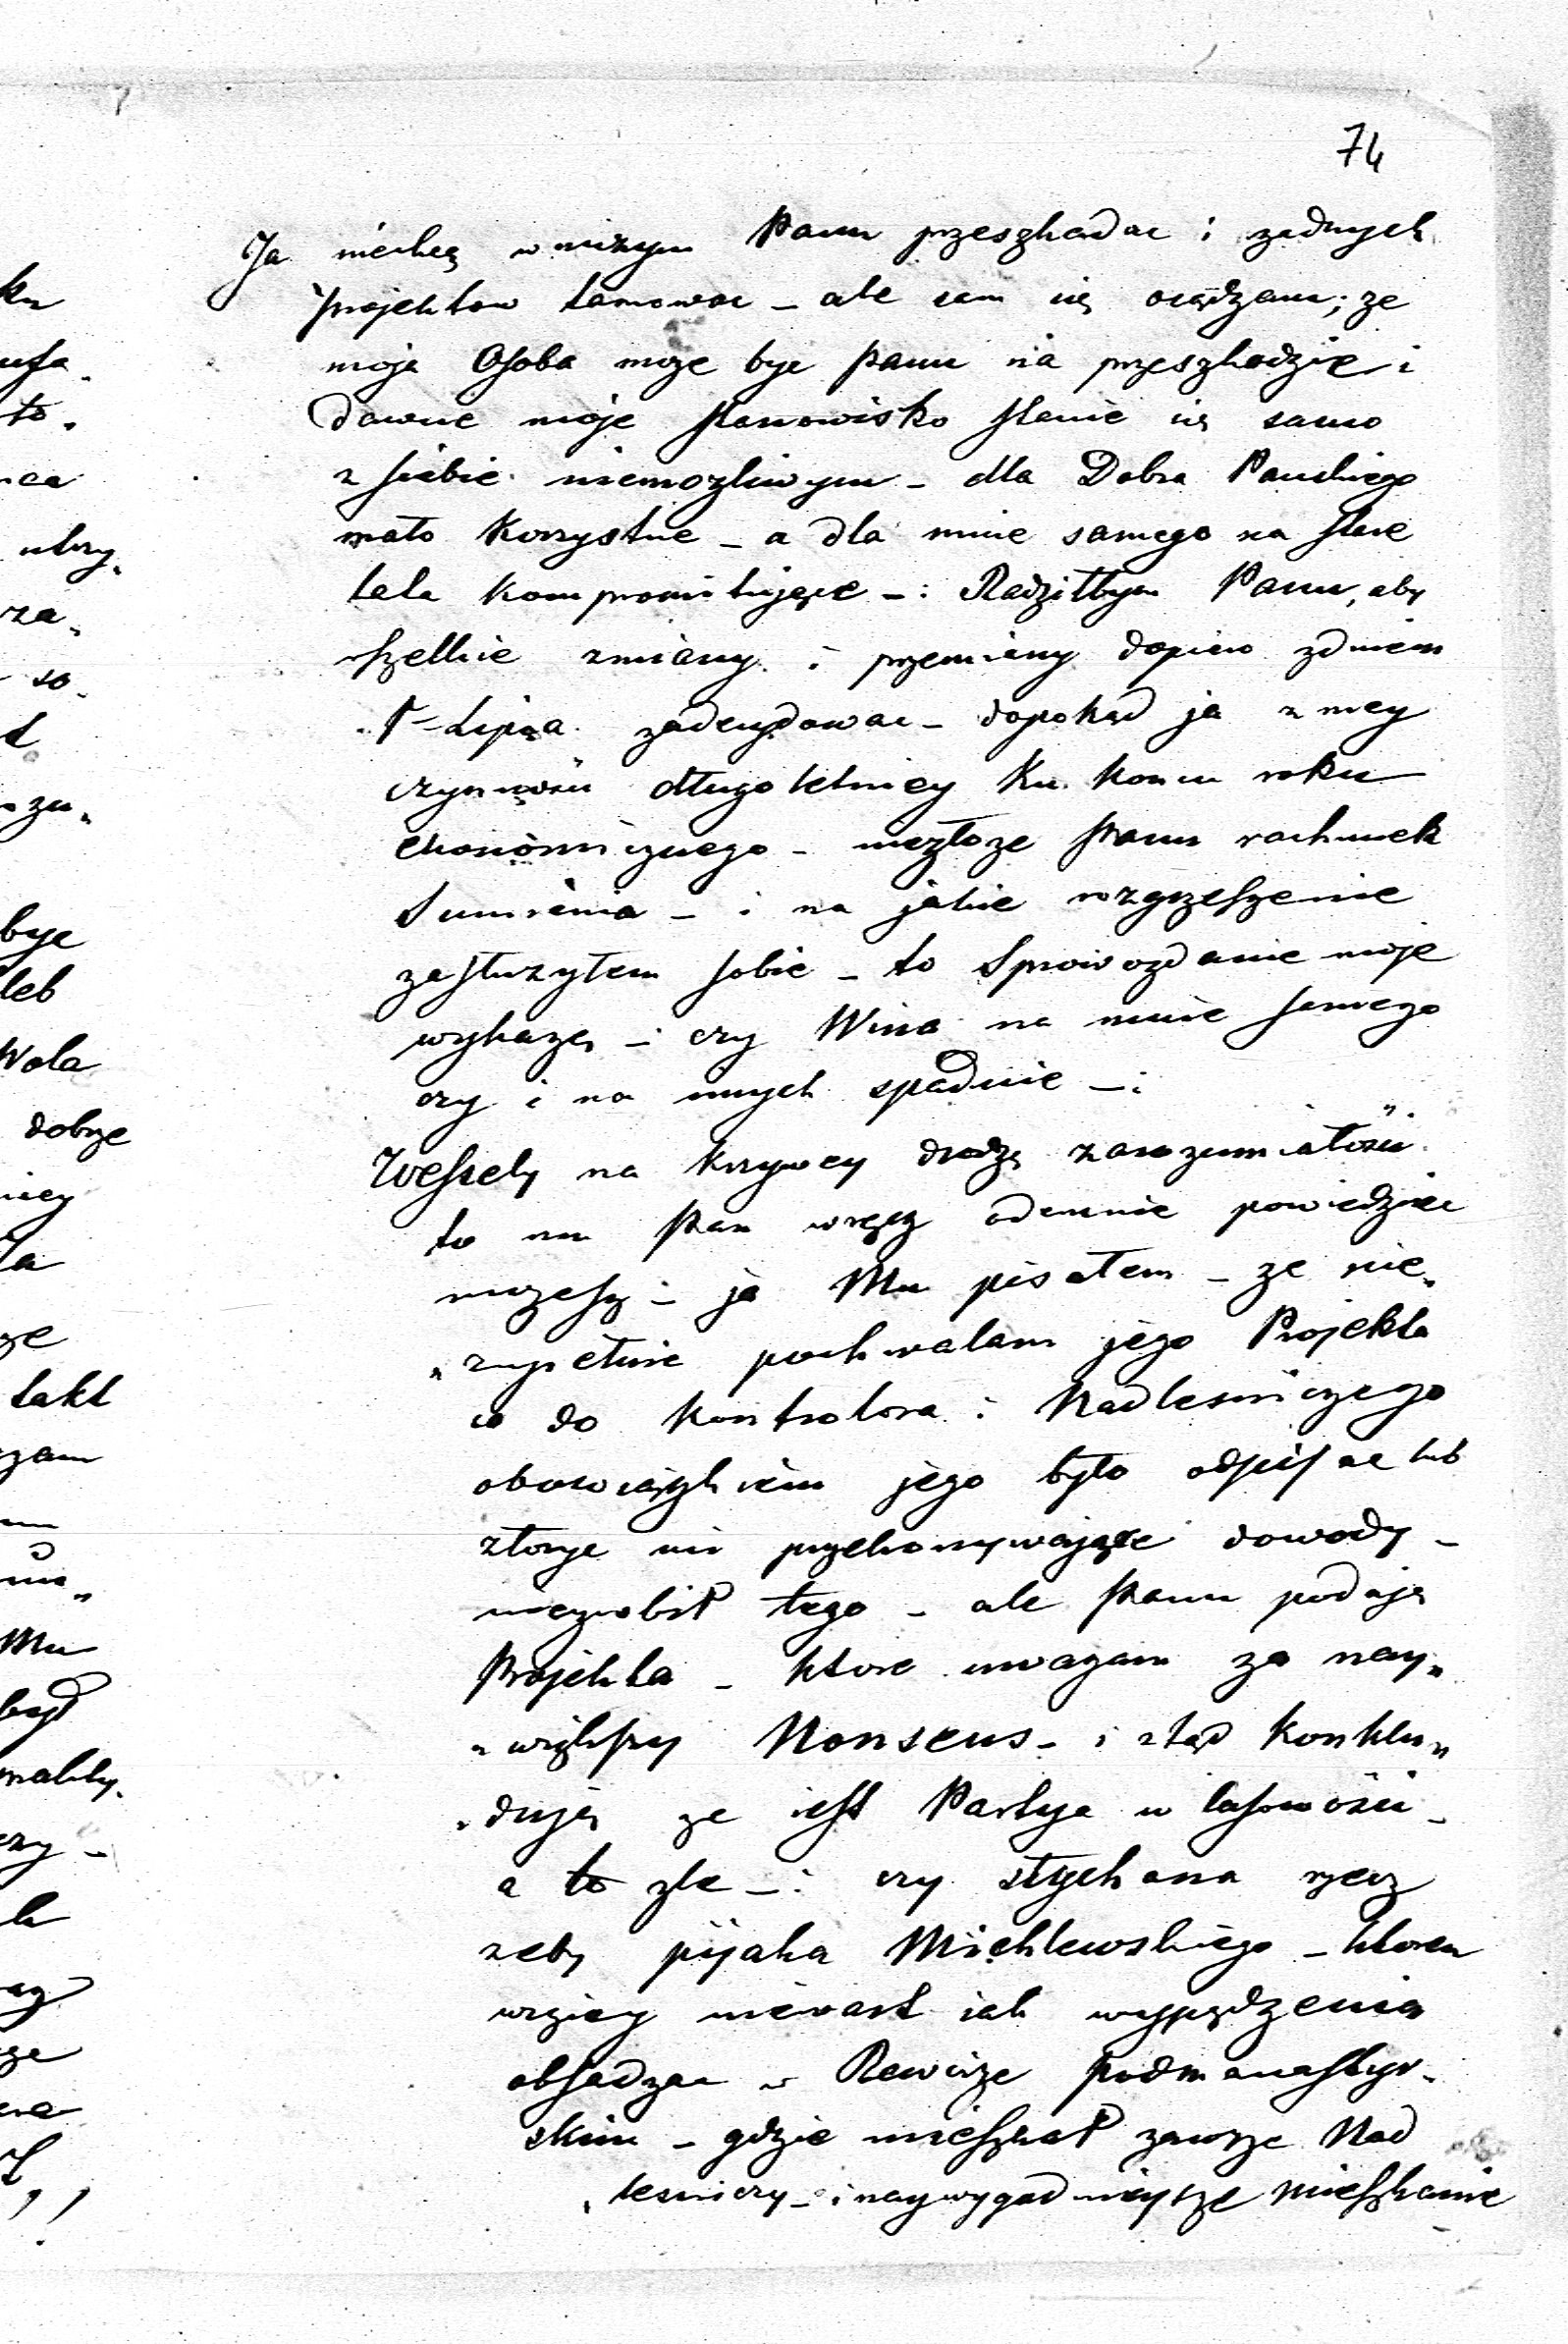 74
Ja niechcę w niczym Panu przeszkadac i zadnych
projektow tamowac – ale sam się osądzam; ze
moja Osoba moze byc Panu na przeszkodzie i
dawne moje stanowisko stanie się samo
z siebie niemozliwym – dla Dobra Panskiego
mało Korzystne – a dla mnie samego na stare
lata kompromitujące –: Radziłbym Panu, aby
wszelkie zmiany i przemiany dopiero zdniem
1– Lipca zadecydowac – dopokąd ja z mey
czynności długoletniey Ku koncu roku
ekonomicznego – niezłoze Panu rachunek
Sumienia – i na jakie rozgrzeszenie
zasłuzyłem sobie – to Sprawozdanie moje
wykaze – i czy Wina na mnie samego
czy i na innych spadnie –:
Wessely na krzywey drodze zarozumiałości
to mu Pan wręcz odemnie powiedziec
mozesz – ja Mu pisałem – ze nie„
„zupełnie pochwalam jego Projekta
co do Kontrolora i Nadlesniczego
obowiązkiem jego było odpisac lub
złozyc mi przekonywające dowody –
niezrobił tego – ale Panu podaje
Projekta – ktore uwazam za nay„
„większy Nonsens – i ztąd Konklu„
„duję ze jest Partya w lasowości –
a to zle –: czy słychana rzecz
zeby pijaka Michlewskiego – ktoren
więcey niewart jak wypędzenia
obsadzac w Rewirze podmonastyr„
skim – gdzie mieszkał zawsze Nad
„lesniczy – i naywygodnieysze mieszkanie
byc
Wola
dobrze
takt
Mu
był